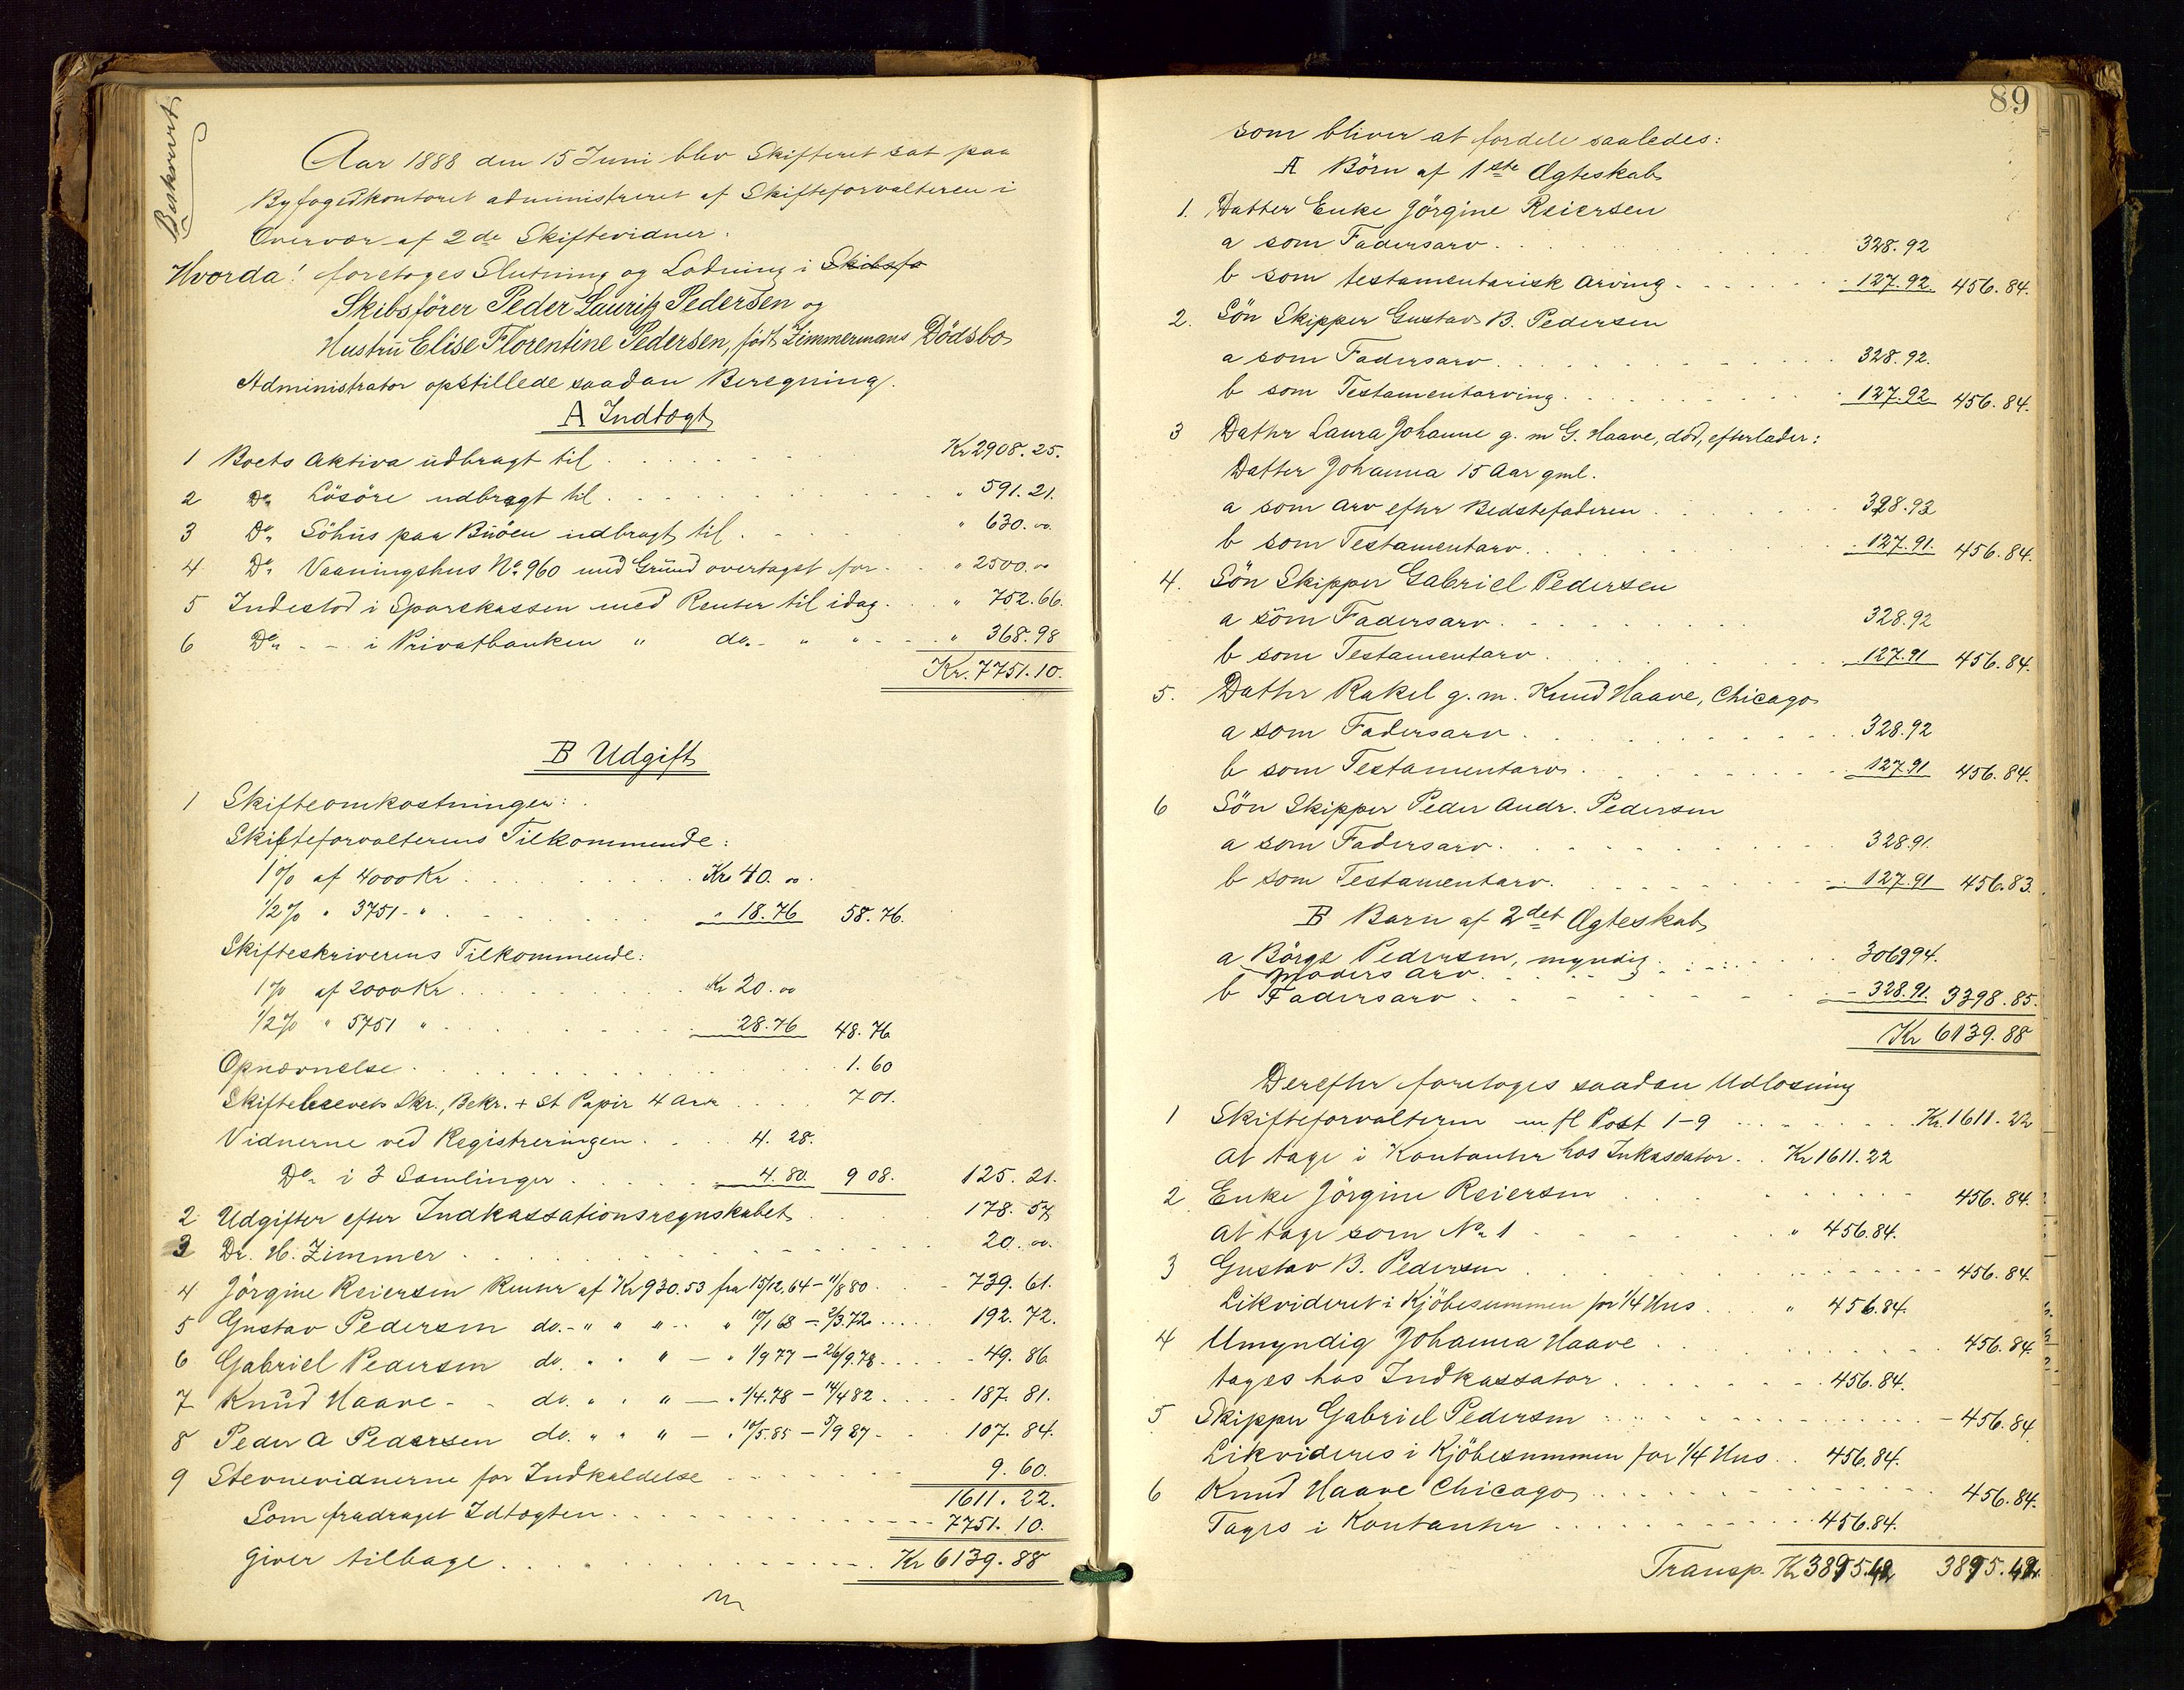 Beskrevet
Aar 1888 den 15 Juni blev Skifteret sat paa
Byfogedkontoret administreret af Skifteforvalteren i
Overvær af 2de Skiftevidner.
Hvorda! foretoges Slutning og Lodning i Skibsfø
Skibsförer Peder Lauritz Pedersen og
Hustru Elise Florentine Pedersen, født Zimmermans Dödsbo
Administrator opstillede saadan Beregning.
A Indtægt
1 Boets Aktiva udbragt til . . . . Kr 2908.25.
2 Do. Lösöre udbragt til . . . . " 591.21.
3 Do. Söhus paa Buöen udbragt til . . . " 630.00
4 Do. Vaaningshus No. 960 med Grund overtaget for . . " 2500.00
5 Indestod i Sparekassen med Renter til idag . . " 752.66.
6 Do. - - i Privatbanken " do. - " " - - " 368.98
Kr. 7751.10.
B Udgift
1 Skifteomkostninger:
Skifteforvalterens Tilkommende:
1% af 4000 Kr . . . . Kr 40.00
1/2% " 3751 - " . . . " 18.76 58.76.
Skifteskriverens Tilkommende:
1% af 2000 Kr . . . . Kr 20.00
1/2% " 5751 " . . . . 28.76 48.76
Opnævnelse . . . . 1.60
Skiftebrevets Skr., Bekr. + St Papir 4 Ark . . . 7 01.
Vidnerne ved Registreringen . . . 4. 28.
Do. i 3 Samlinger . . . . 4.80. 9 08. 125. 21.
2 Udgifter efter Indkassationsregnskabet . . 178. 57
3 Dr. H. Zimmer . . . . 20.00.
4 Jörgine Reiersen Renter af Kr 930.53 fra 15/12,64 - 11/8 80 . . 739. 61.
5 Gustav Pedersen do. - " " " - " 10/1 68 - 2/3.72 . . . . 192. 72.
6 Gabriel Pedersen do. " " " - " 1/9 77 - 26/9.78 . . . . 49. 86
7 Knud Haave - - do. " " " - " 1/4.78 - 14/4 82 . . . 187. 81.
8 Peder A Pedersen do. " " " - " 10/5.85 - 5/9 87 - . . 107. 84.
9 Stevnevidnerne for Indkaldelse . . . . 9. 60.
1611. 22.
Som fradraget Idtægten . . . . 7751. 10.
giver tilbage . . . . Kr 6139. 88
89
som bliver at fordele saaledes:
A Börn af 1ste Ægteskab
1. Datter Enke Jörgine Reiersen
a som Fadersarv . . . . 328.92
b som testamentarisk Arving . . . . 127.92. 456.84.
2. Sön Skipper Gustav B. Pedersen
a som Fadersarv . . . . 328.92.
b som Testamentarving . . . . 127.92 456.84.
3 Datter Laura Johanne g. m G. Haave, död, efterlader:
Datter Johanna 15 Aar gml.
a som Arv efter Bedstefaderen . . . . 328.93
b som Testamentarv . . . . 127.91. 456.84.
4. Sön Skipper Gabriel Pedersen
a som Fadersarv . . . . 328.92
b som Testamentarv . . . . 127.91 456.84.
5. Datter Rakel g. m. Knud Haave, Chicago
a som Fadersarv . . . . 328.92
b som Testamentarv . . . . 127.91 456.84.
6 Sön Skipper Peder Andr. Pedersen
a som Fadersarv . . . . 328.91.
b som Testamentarv . . . . 127.91 456.83.
B Barn af 2det Ægteskab
a Börge Pedersen, myndig . . . .
Moders Arv . . . . 306994.
b Fadersarv . . . . - 328.91. 3398.85.
Kr 6139.88
Derefter foretoges saadan Udlösning
1 Skifteforvalteren m fl Post 1-9 . . . . Kr. 1611.22
at tage i Kontanter hos Inkassator . . Kr 1611.22
2 Enke Jörgine Reiersen . . . . 456.84.
at tage som No. 1 . . . . " 456.84.
3 Gustav B. Pedersen . . . . 456.84.
Likvideret i Kjöbesummen for 1/4 Hus . . " 456.84.
4 Umyndig Johanna Haave . . . . 456.84.
tages hos Indkassator . . . . 456.84.
5 Skipper Gabriel Pedersen . . . . - 456.84
Likvideres i Kjöbesummen for 1/4 Hus . . 456.84.
6 Knud Haave Chicago . . . . 456.84.
Tages i Kontanter . . . . 456.84.
Transp. Kr 3895.42 3895.42.